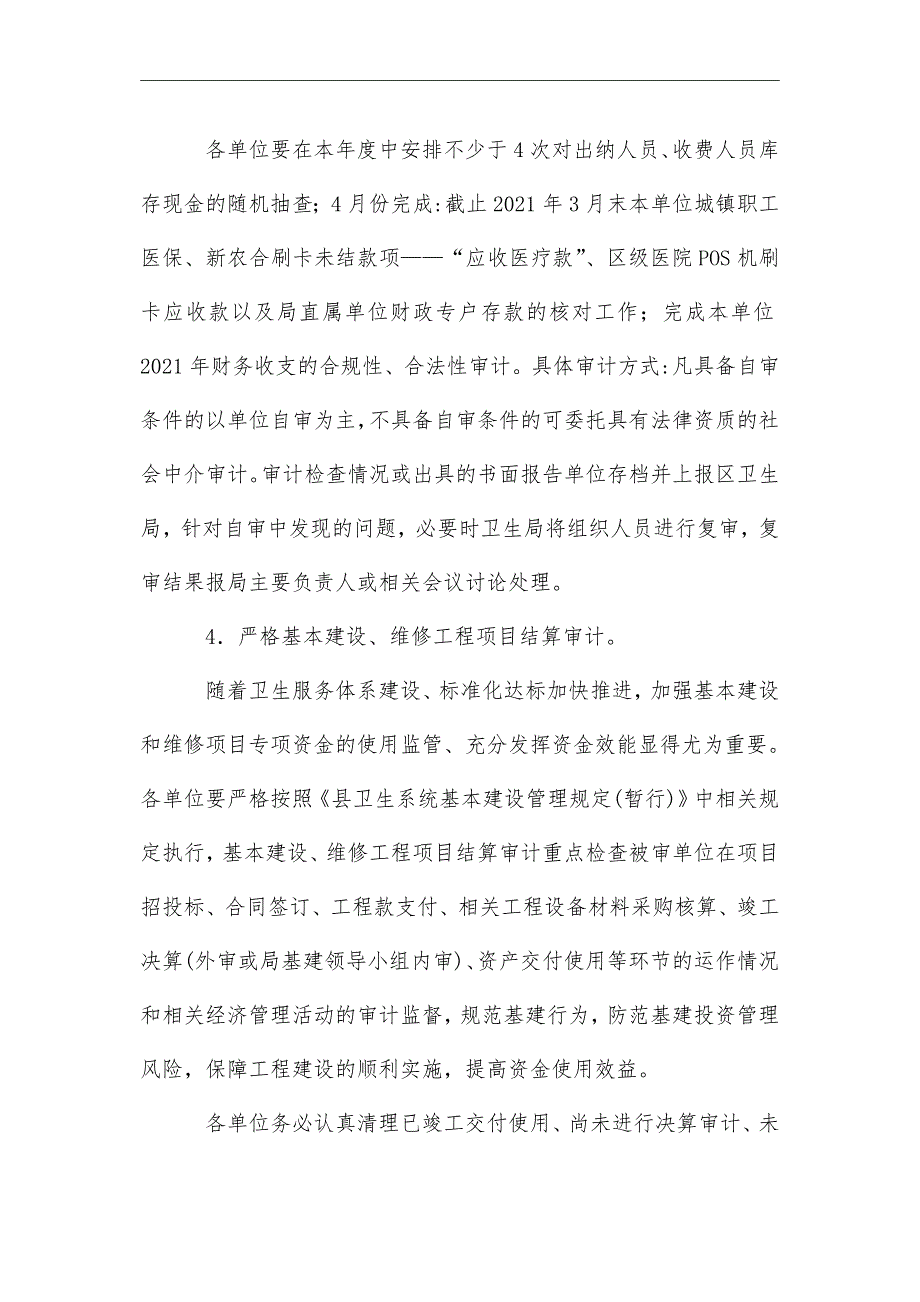 各单位要在本年度中安排不少于4次对出纳人员、收费人员库
存现金的随机抽查；4月份完成:截止2021年3月末本单位城镇职工
医保、新农合刷卡未结款项——“应收医疗款”、区级医院POS机刷
卡应收款以及局直属单位财政专户存款的核对工作；完成本单位
2021年财务收支的合规性、合法性审计。具体审计方式:凡具备自审
条件的以单位自审为主,不具备自审条件的可委托具有法律资质的社
会中介审计。审计检查情况或出具的书面报告单位存档并上报区卫生
局，针对自审中发现的问题，必要时卫生局将组织人员进行复审，复
审结果报局主要负责人或相关会议讨论处理。
4．严格基本建设、维修工程项目结算审计。
随着卫生服务体系建设、标准化达标加快推进，加强基本建设
和维修项目专项资金的使用监管、充分发挥资金效能显得尤为重要。
各单位要严格按照《县卫生系统基本建设管理规定(暂行)》中相关规
定执行，基本建设、维修工程项目结算审计重点检查被审单位在项目
招投标、合同签订、工程款支付、相关工程设备材料采购核算、竣工
决算(外审或局基建领导小组内审)、资产交付使用等环节的运作情况
和相关经济管理活动的审计监督，规范基建行为，防范基建投资管理
风险，保障工程建设的顺利实施，提高资金使用效益。
各单位务必认真清理已竣工交付使用、尚未进行决算审计、未